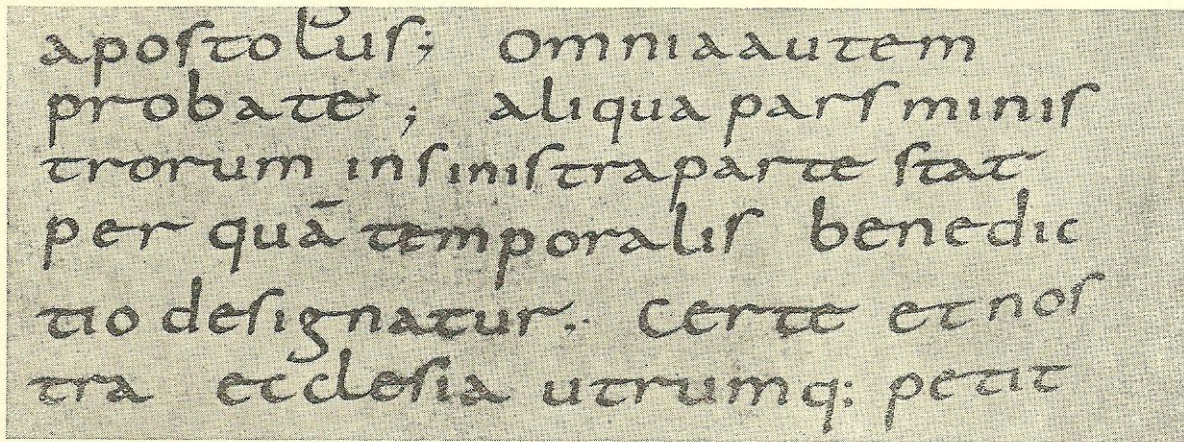 apostolus; Omniaautem
probate; aliqua pars minis
trorum insinistraparte stat
per quā temporalis benedic
tio designatur. Certe et nos
tra ecclesia utrumq: petit